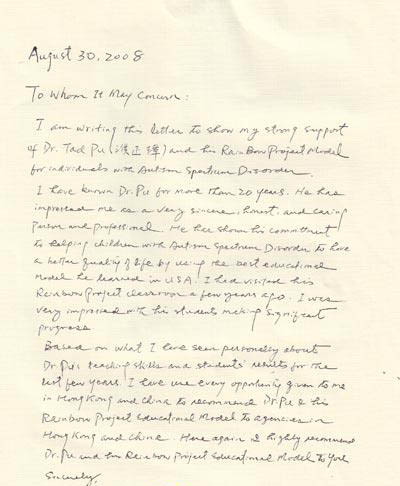 August 30, 2008
To Whom It May Concern:
I am writing this letter to show my strong support
of Dr. Tad Pu ( 正 ) and his Rainbow Project Model
for individuals with Autism Spectrum Disorder.
I have known Dr. Pu for more than 20 years. He has
impressed me as a very sincere, honest, and caring
person and professional. He has shown his commitment
to helping children with Autism Spectrum Disorder to have
a better quality of life by using the best educational
model he learned in USA. I had visited his
Rainbow Project classroom a few years ago. I was
very impressed with his students making significant
progress
Based on what I have seen personally about
Dr Pu's teaching skills and students' results for the
last few years. I have use every opportunity given to me
in Hong Kong and China to recommend Dr. Pu & his
Rainbow Project Educational Model to agencies in
Hong Kong and China. Here again I highly recommend
Dr. Pu and his Rainbow Project Educational Model to you
Sincerely,